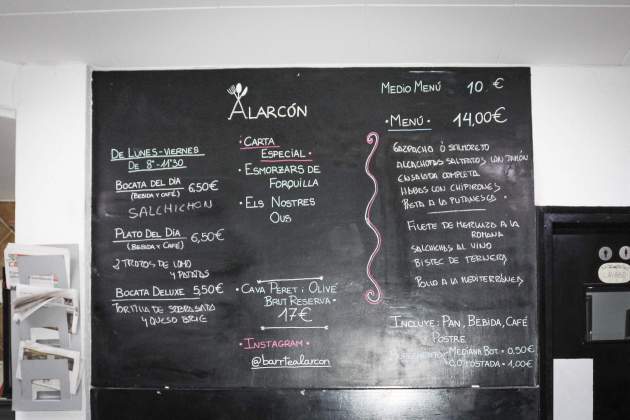 ALARCÓN
DE LUNES-VIERNES
DE 8-11'30
BOCATA DEL DÍA 6,50€
(BEBIDA Y CAFÉ)
SALCHICHON
PLATO DEL DÍA 6,50€
(BEBIDA Y CAFÉ)
3 TROZOS DE LOMO
Y PATATAS
BOCATA DELUXE 5,50€
TORTILLA DE SOBRASADA
Y QUESO BRIE
·CARTA
ESPECIAL·
·ESMORZARS DE
FORQUILLA
·ELS NOSTRES
OUS
·CAVA PERET I OLIVÉ
BRUT RESERVA·
17€
·INSTAGRAM·
@barrtealarcon
MEDIO MENÚ 10 €
·MENÚ· 14,00€
GAZPACHO Ó SALMOREJO
ALCACHOFAS SALTEADAS CON JAMÓN
ENSALADA COMPLETA
HABAS CON CHIPIRONES
PASTA A LA PUTANESCA
FILETE DE MERLUZA A LA
ROMANA
SALCHICHAS AL VINO
BISTEC DE TERNERA
POLLO A LA MEDITERRÁNEA
INCLUYE: PAN, BEBIDA, CAFÉ
POSTRE
MEDIANA BOT. + 0,50€
TOSTADA + 1,00€